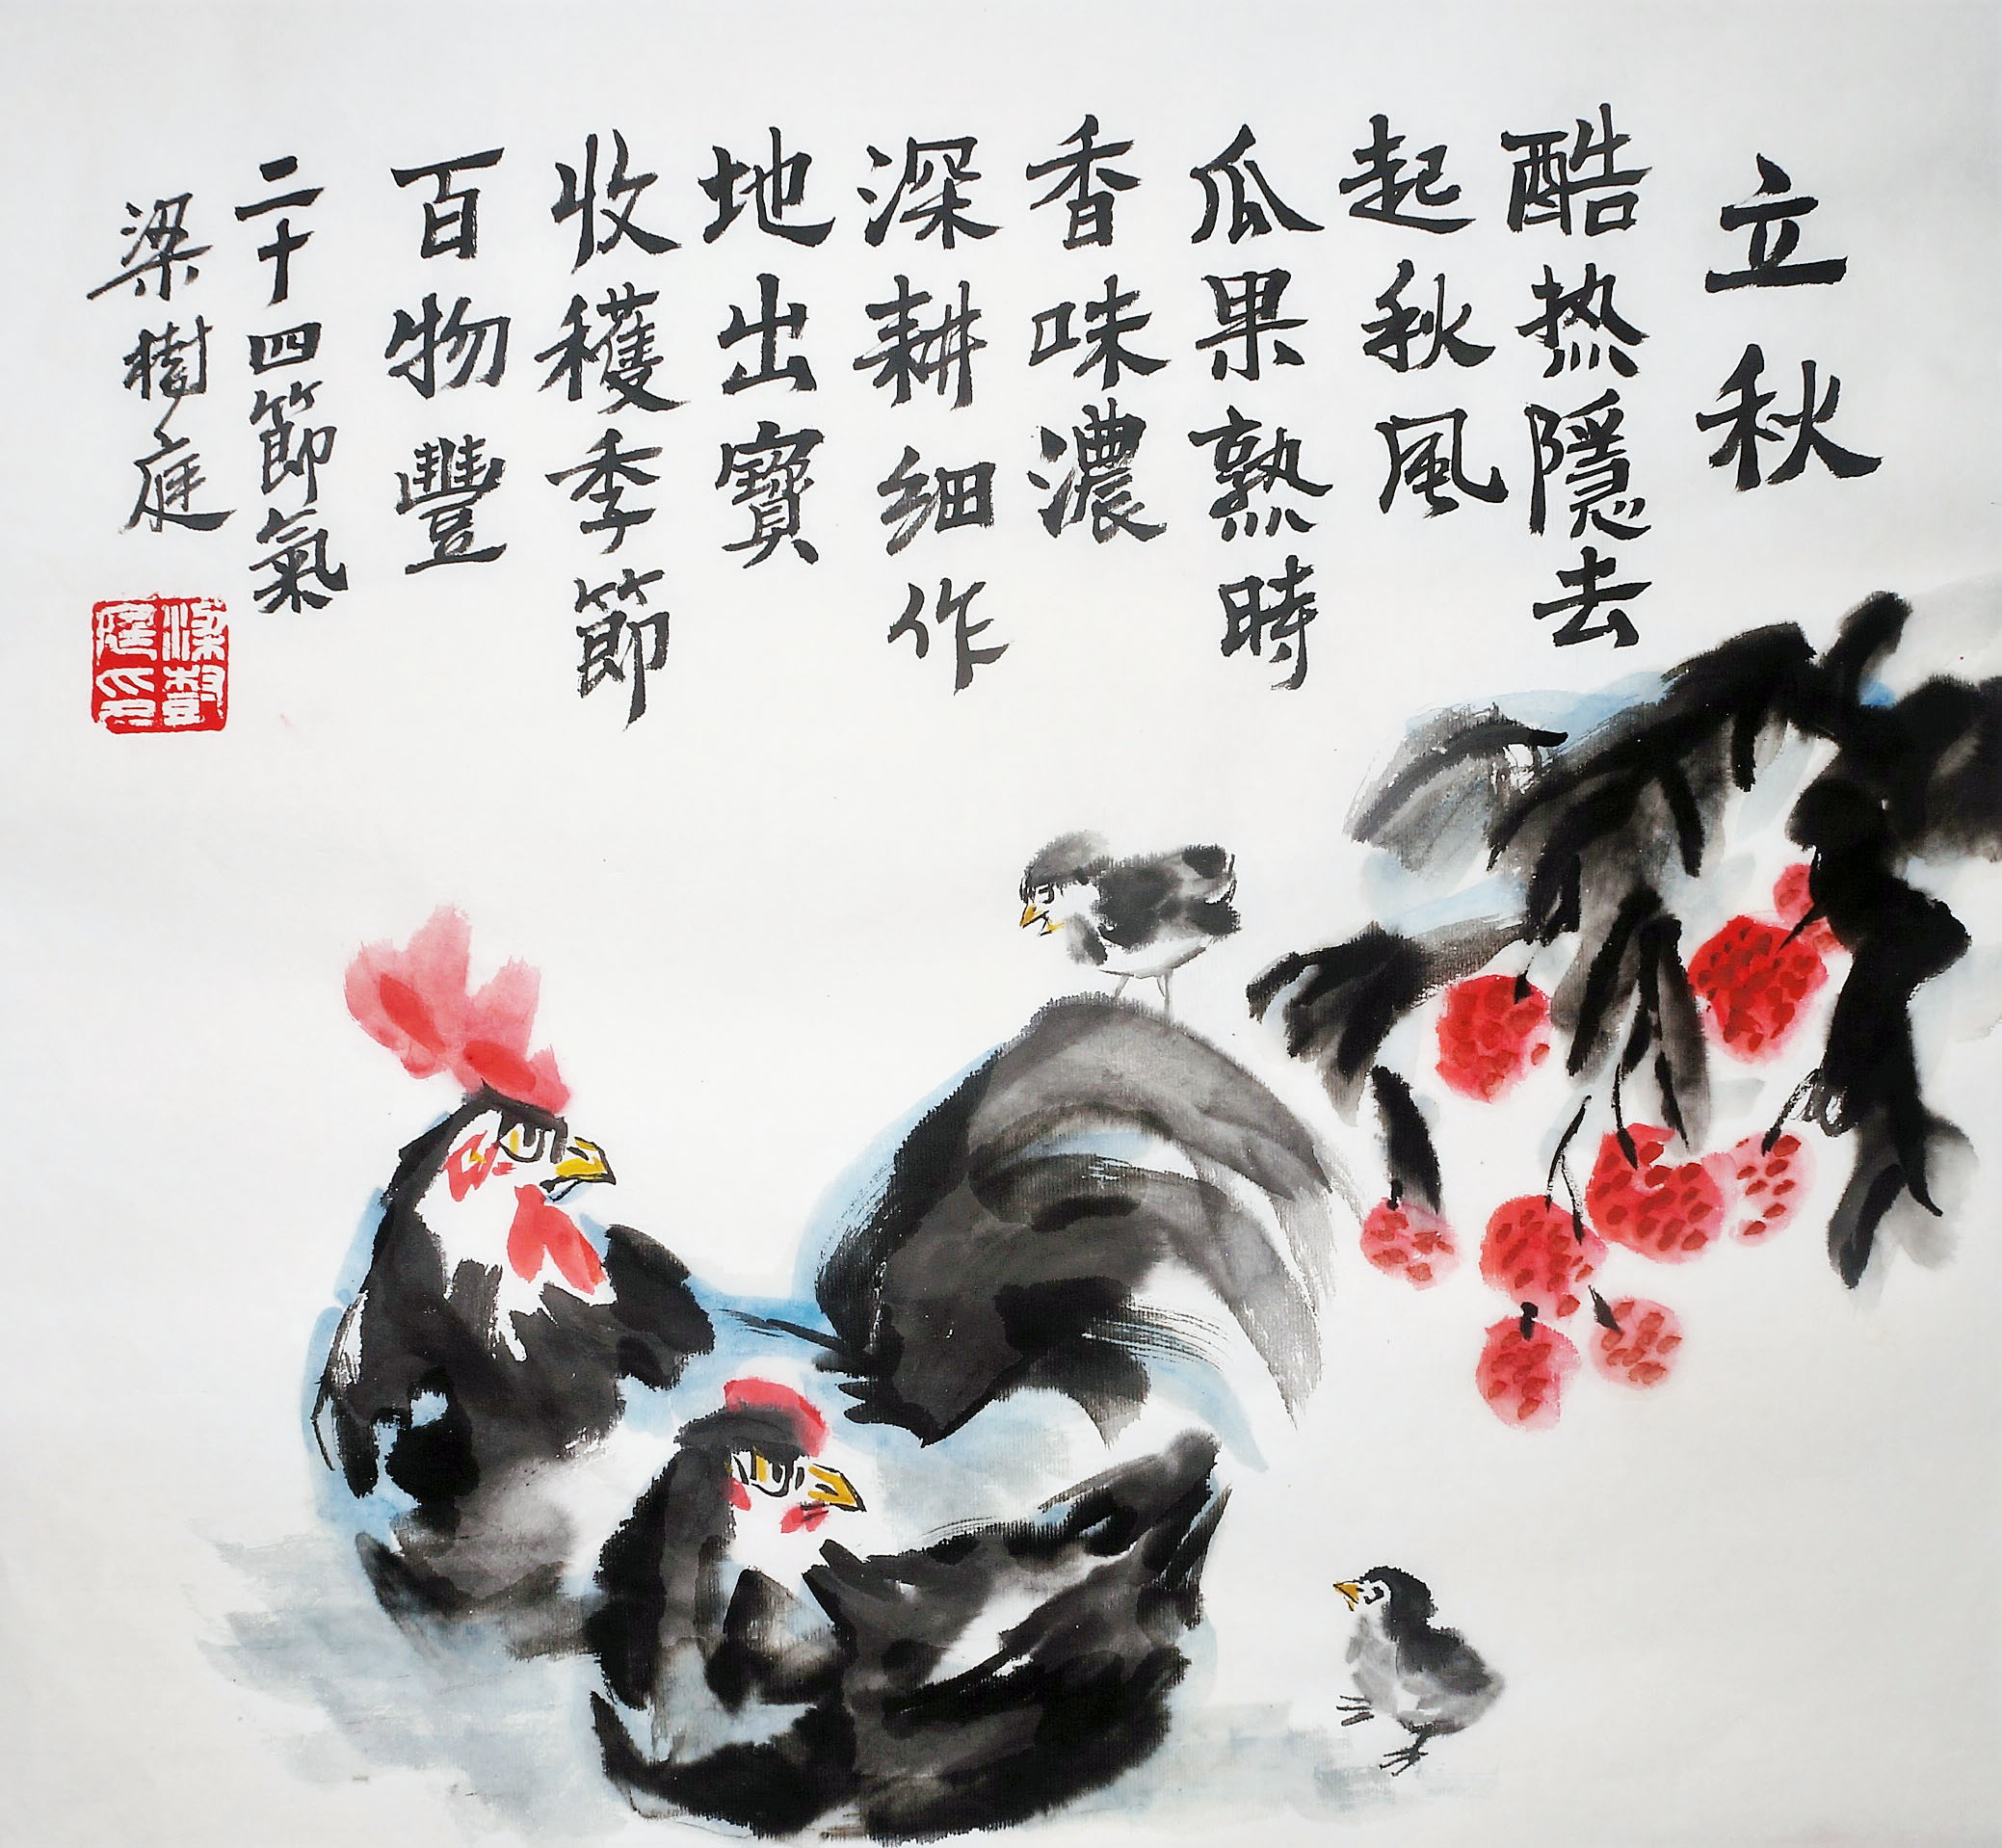 立秋
酷热隱去
起秋風
瓜果熟時
香味濃
深耕细作
地出寶
收穫季節
百物豐
二十四節氣
梁樹庭
梁樹庭印